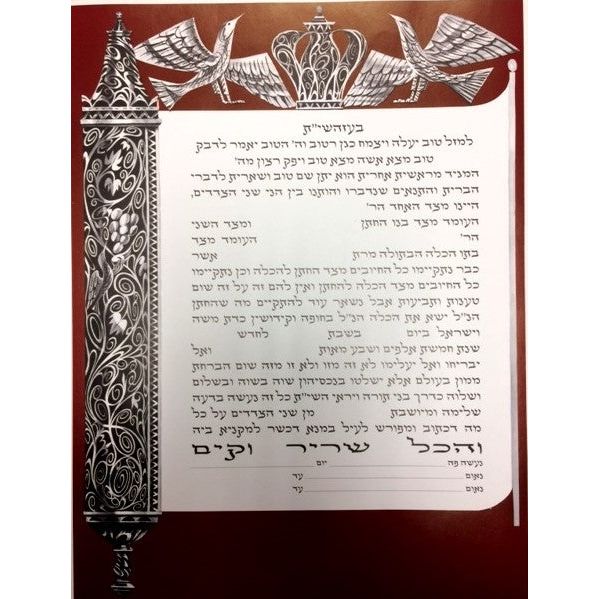 בעזהשי"ת
למזל טוב יעלה ויצמח כגן רטוב וה' הטוב יאמר לדבק
טוב מצא אשה מצא טוב ויפק רצון מה'
המגיד מראשית אחרית הוא יתן שם טוב ושארית לדברי
הברית והתנאים שנדברו והותנו בין הני שני הצדדים,
היינו מצד האחד הר'
העומד מצד בנו החתן ומצד השני
הר' העומד מצד
בתו הכלה הבתולה מרת אשר
כבר נתקיימו כל החיובים מצד החתן להכלה וכן נתקיימו
כל החיובים מצד הכלה להחתן ואין להם זה על זה שום
טענות ותביעות אבל נשאר עוד להתקיים מה שהחתן
הנ"ל ישא את הכלה הנ"ל בחופה וקידושין כדת משה
וישראל ביום בשבת לחדש
שנת חמשת אלפים ושבע מאות ואל
יבריחו ואל יעלימו לא זה מזו ולא זו מזה שום הברחת
ממון בעולם אלא ישלטו בנכסיהון שוה בשוה ובשלום
ושלוה כדרך בני תורה ויראי השי"ת כל זה נעשה בדעה
שלימה ומיושבת מן שני הצדדים על כל
מה דכתוב ומפורש לעיל במנא דכשר למקניא ביה
והכל שריר וקים
נעשה פה יום
נאום עד
נאום עד